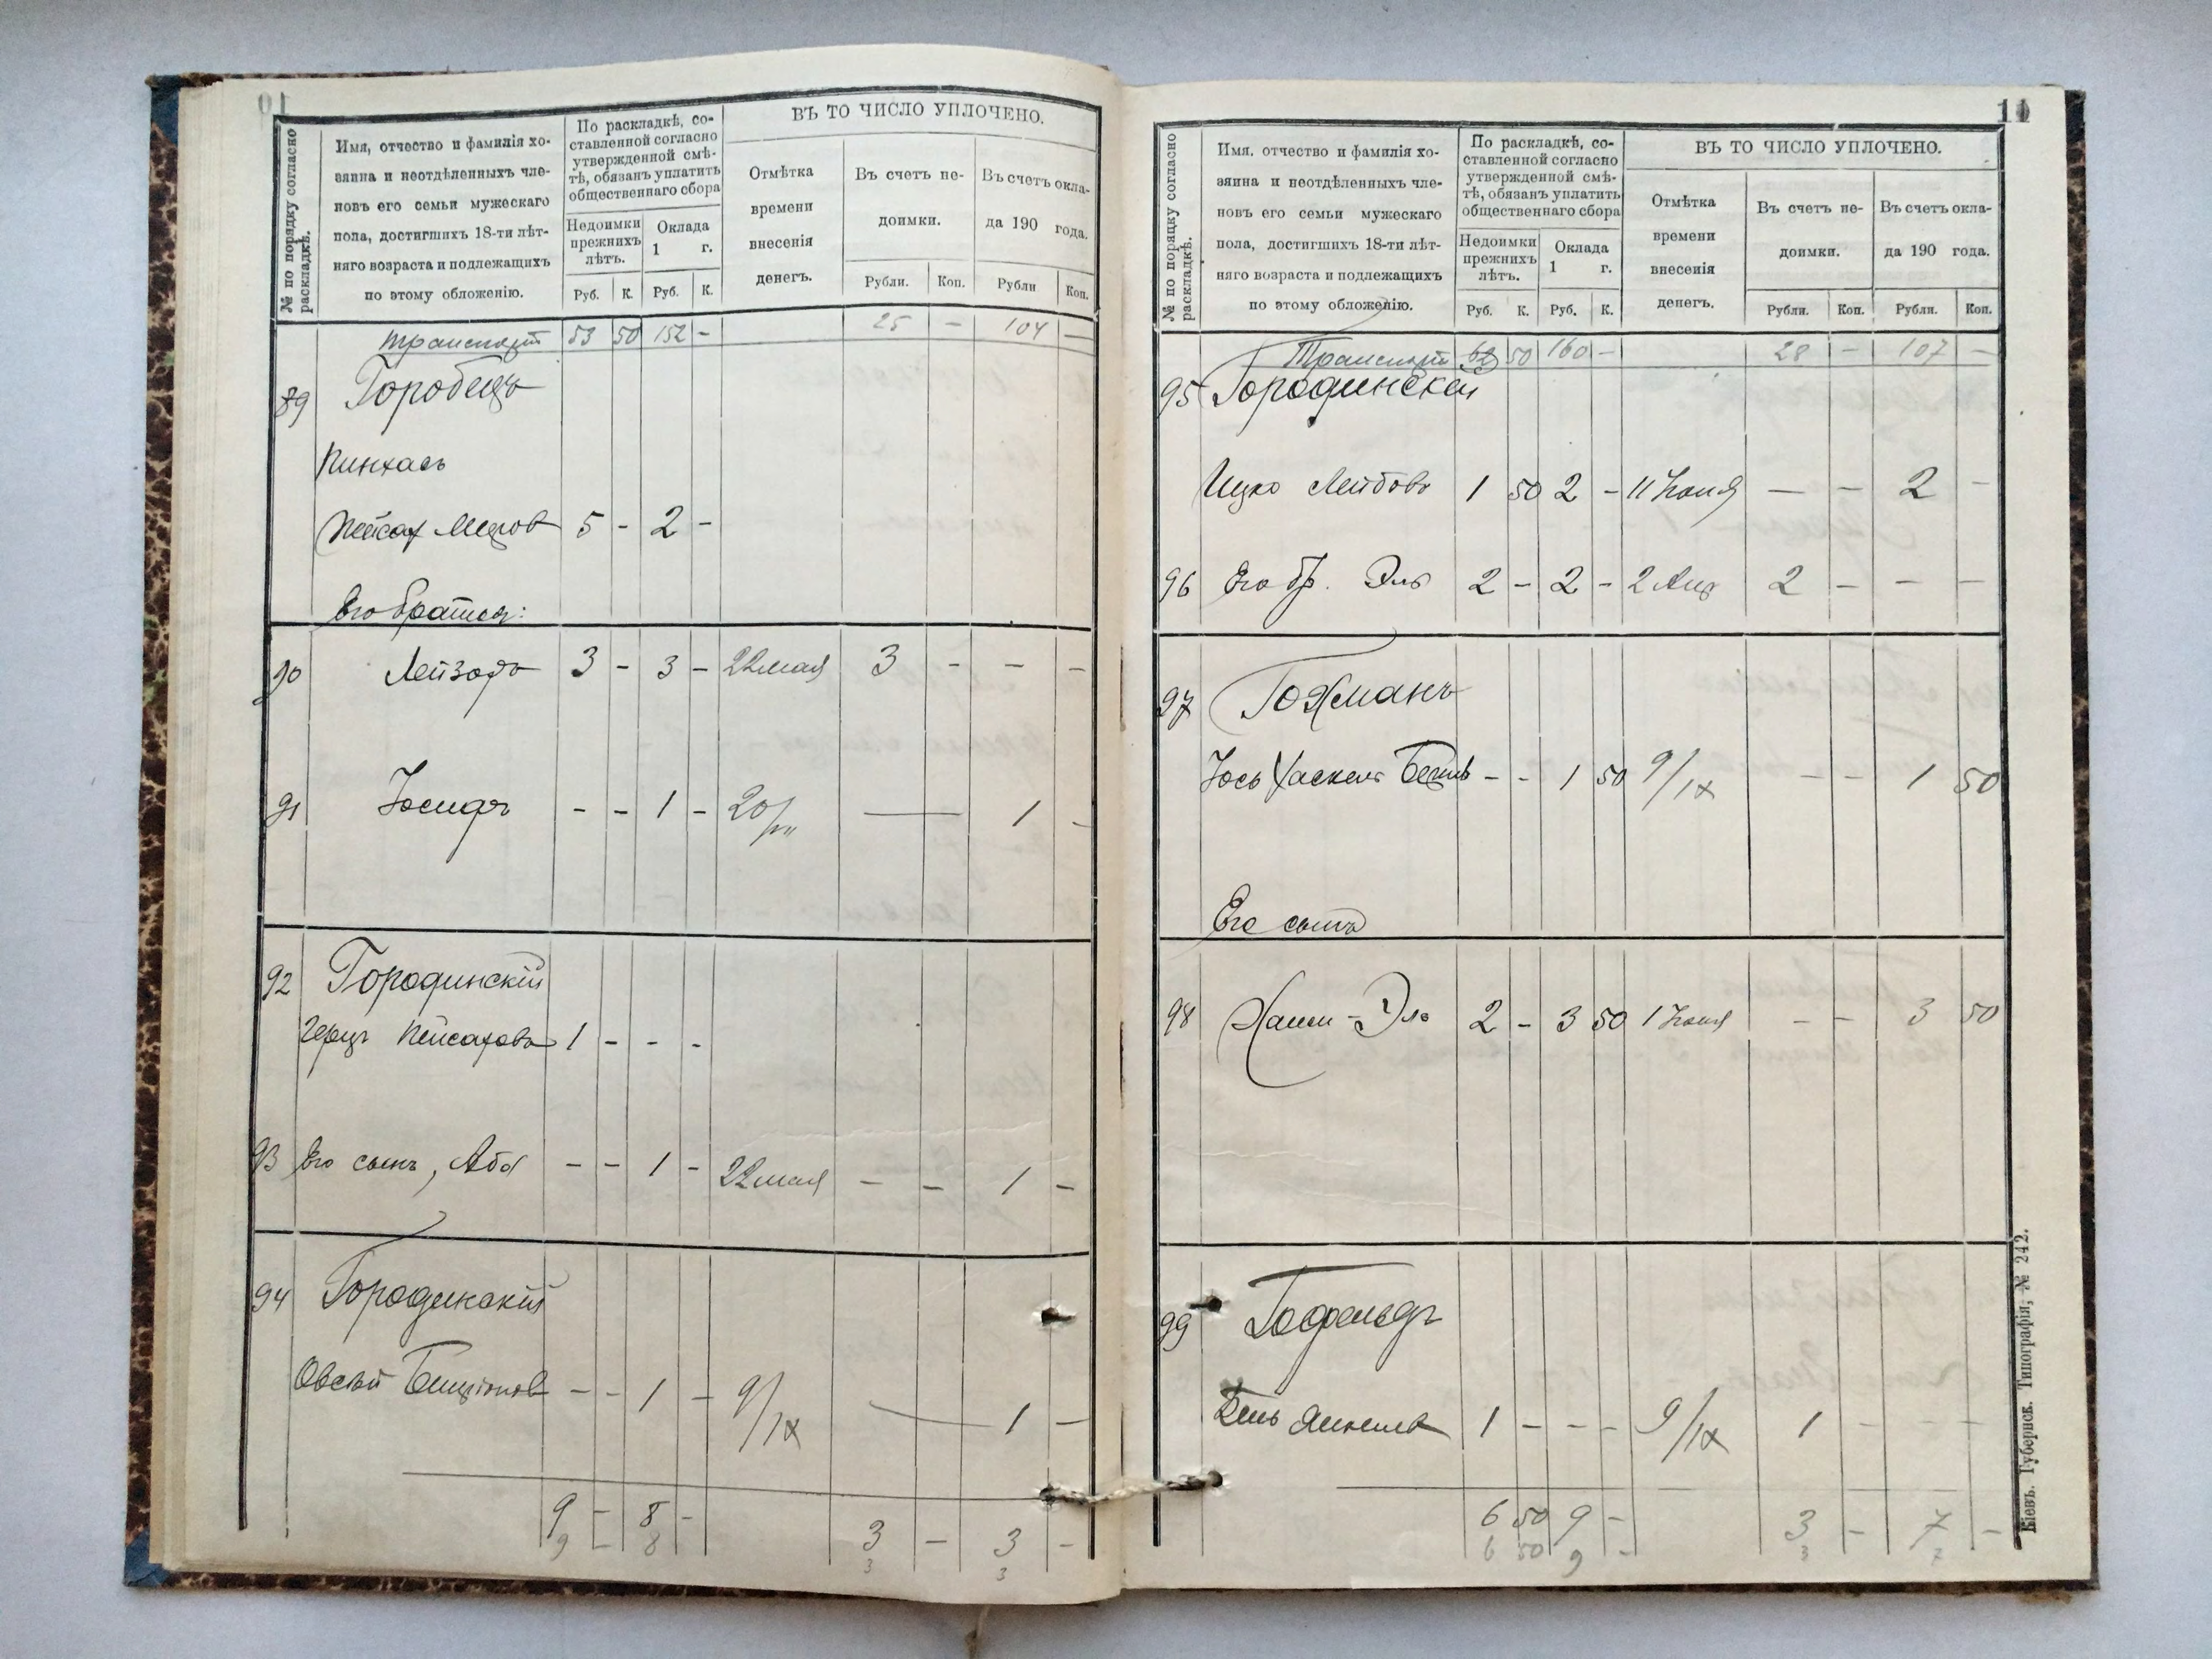 10
№ по порядку согласно раскладкѣ.
Имя, отчество и фамилія хо-
зяина и неотдѣленныхъ чле-
новъ его семьи мужескаго
пола, достигшихъ 18-ти лѣт-
няго возраста и подлежащихъ
по этому обложенію.
По раскладкѣ, со-
ставленной согласно
утвержденной смѣ-
тѣ, обязанъ уплатить
общественнаго сбора
Недоимки
прежнихъ
лѣтъ.
Оклада
1 г.
Руб. К. Руб. К.
ВЪ ТО ЧИСЛО УПЛОЧЕНО.
Отмѣтка
времени
внесенія
денегъ.
Въ счетъ не-
доимки.
Рубли. Коп.
Въ счетъ окла-
да 190 года.
Рубли Коп.
Транспортъ 53 50 152 - 25 - 104 -
89 Горобецъ
Пинхасъ
Пейсах Мееров 5 - 2 -
Его братья:
90 Лейзоръ 3 - 3 - 22 мая 3 - - -
91 Іосифъ - - 1 - 20/VII — 1 -
92 Городинскій
Герцъ Пейсаховъ 1 - - -
93 Его сынъ, Аба - - 1 - 22 мая - - 1 -
94 Городинскій
Овсѣй Бенціонов - - 1 - 9/IX — 1 -
9 - 8 - 3 - 3 -
9 - 8 3 3
11
№ по порядку согласно раскладкѣ.
Имя, отчество и фамилія хо-
зяина и неотдѣленныхъ чле-
новъ его семьи мужескаго
пола, достигшихъ 18-ти лѣт-
няго возраста и подлежащихъ
по этому обложенію.
По раскладкѣ, со-
ставленной согласно
утвержденной смѣ-
тѣ, обязанъ уплатить
общественнаго сбора
Недоимки
прежнихъ
лѣтъ.
Оклада
1 г.
Руб. К. Руб. К.
ВЪ ТО ЧИСЛО УПЛОЧЕНО.
Отмѣтка
времени
внесенія
денегъ.
Въ счетъ не-
доимки.
Рубли. Коп.
Въ счетъ окла-
да 190 года.
Рубли. Коп.
Транспортъ 62 50 160 - 28 - 107 -
95 Городинскій
Ицко Лейбовъ 1 50 2 - 11 Іюня - - 2 -
96 Его бр. Эль 2 - 2 - 2 Апр 2 - - -
97 Гохманъ
Іось Хаскель - - 1 50 9/IX - - 1 50
Его сынъ
98 Хаим-Эль 2 - 3 50 1 Іюня - - 3 50
99 Гофельдъ
Янкелев 1 - - - 9/IX 1 - - -
6 50 9 - 3 - 7 -
6 50 9 - 3 7
Кіевъ. Губернск. Типографія, № 242.